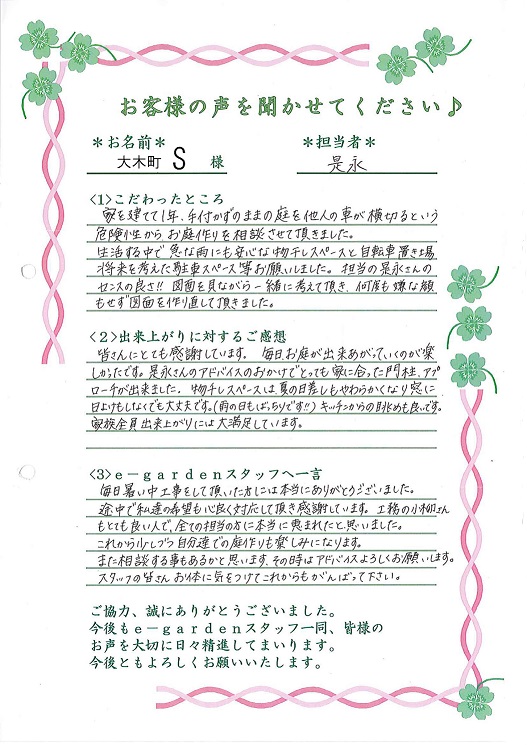 お客様の声を聞かせてください♪
*お名前* *担当者*
大木町 S 様 是永
<1>こだわったところ
家を建てて1年、手付かずのままの庭を他人の車が横切るという
危険性から、お庭作りを相談させて頂きました。
生活する中で急な雨にも安心な物干しスペースと自転車置き場
将来を考えた駐車スペース等お願いしました。担当の是永さんの
センスの良さ!! 図面を見ながら一緒に考えて頂き、何度も嫌な顔
もせず図面を作り直して頂きました。
<2>出来上がりに対するご感想
皆さんにとても感謝しています。毎日お庭が出来あがっていくのが楽
しかったです。是永さんのアドバイスのおかげでとっても家に合った門柱、アプ
ローチが出来ました。物干しスペースは夏の日差しもやわらかくなり窓に
日よけもしなくても大丈夫です。(雨の日もばっちりです!!) キッチンからの眺めも良いです。
家族全員出来上がりには大満足しています。
<3>e-gardenスタッフへ一言
毎日暑い中工事をして頂いた方には本当にありがとうございました。
途中で私達の希望も心良く対応して頂き感謝しています。工務の小柳さん
もとても良い人で、全ての担当の方に本当に恵まれたと思いました。
これから少しづつ自分達での庭作りも楽しみになります。
また相談する事もあるかと思います、その時はアドバイスよろしくお願いします。
スタッフの皆さんお体に気をつけてこれからもがんばって下さい。
ご協力、誠にありがとうございました。
今後もe-gardenスタッフ一同、皆様の
お声を大切に日々精進してまいります。
今後ともよろしくお願いいたします。